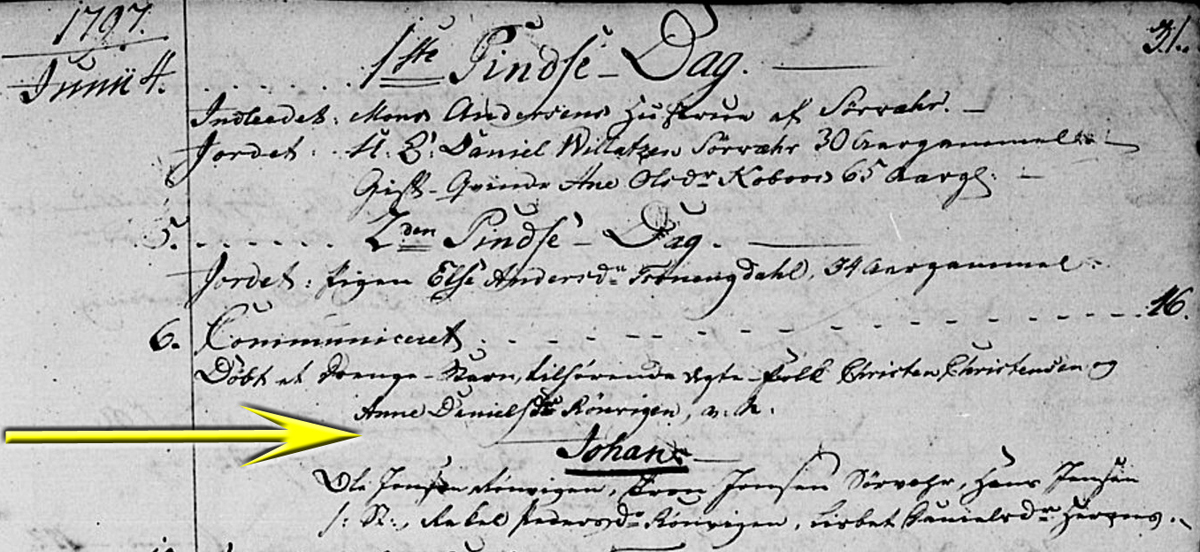 1797.
31.
Junii 4. 1ste Pindse-Dag.
Indleedet: Mons Andersens Hustrue af Sörvæhr.
Jordet: U: E: Daniel Willatzen Sörvæhr 30 Aar gammel
Gift-Qvinde Ane Olsdr Koboen 65 Aar gl:
5. 2den Pindse-Dag.
Jordet: Pigen Else Andersdr 34 Aar gammel
6. Communiceret 16.
Döbt et Drenge-Barn, tilhörende Egte-Folk Christen Christensen og
Anne Danielsdr Rönvigen, v. n.
Johan
Ole Jensen Rönvigen, Jensen Sörvæhr, Hans Jensen
Rakel Pedersdr Rönvigen, Lisbet Danielsdr